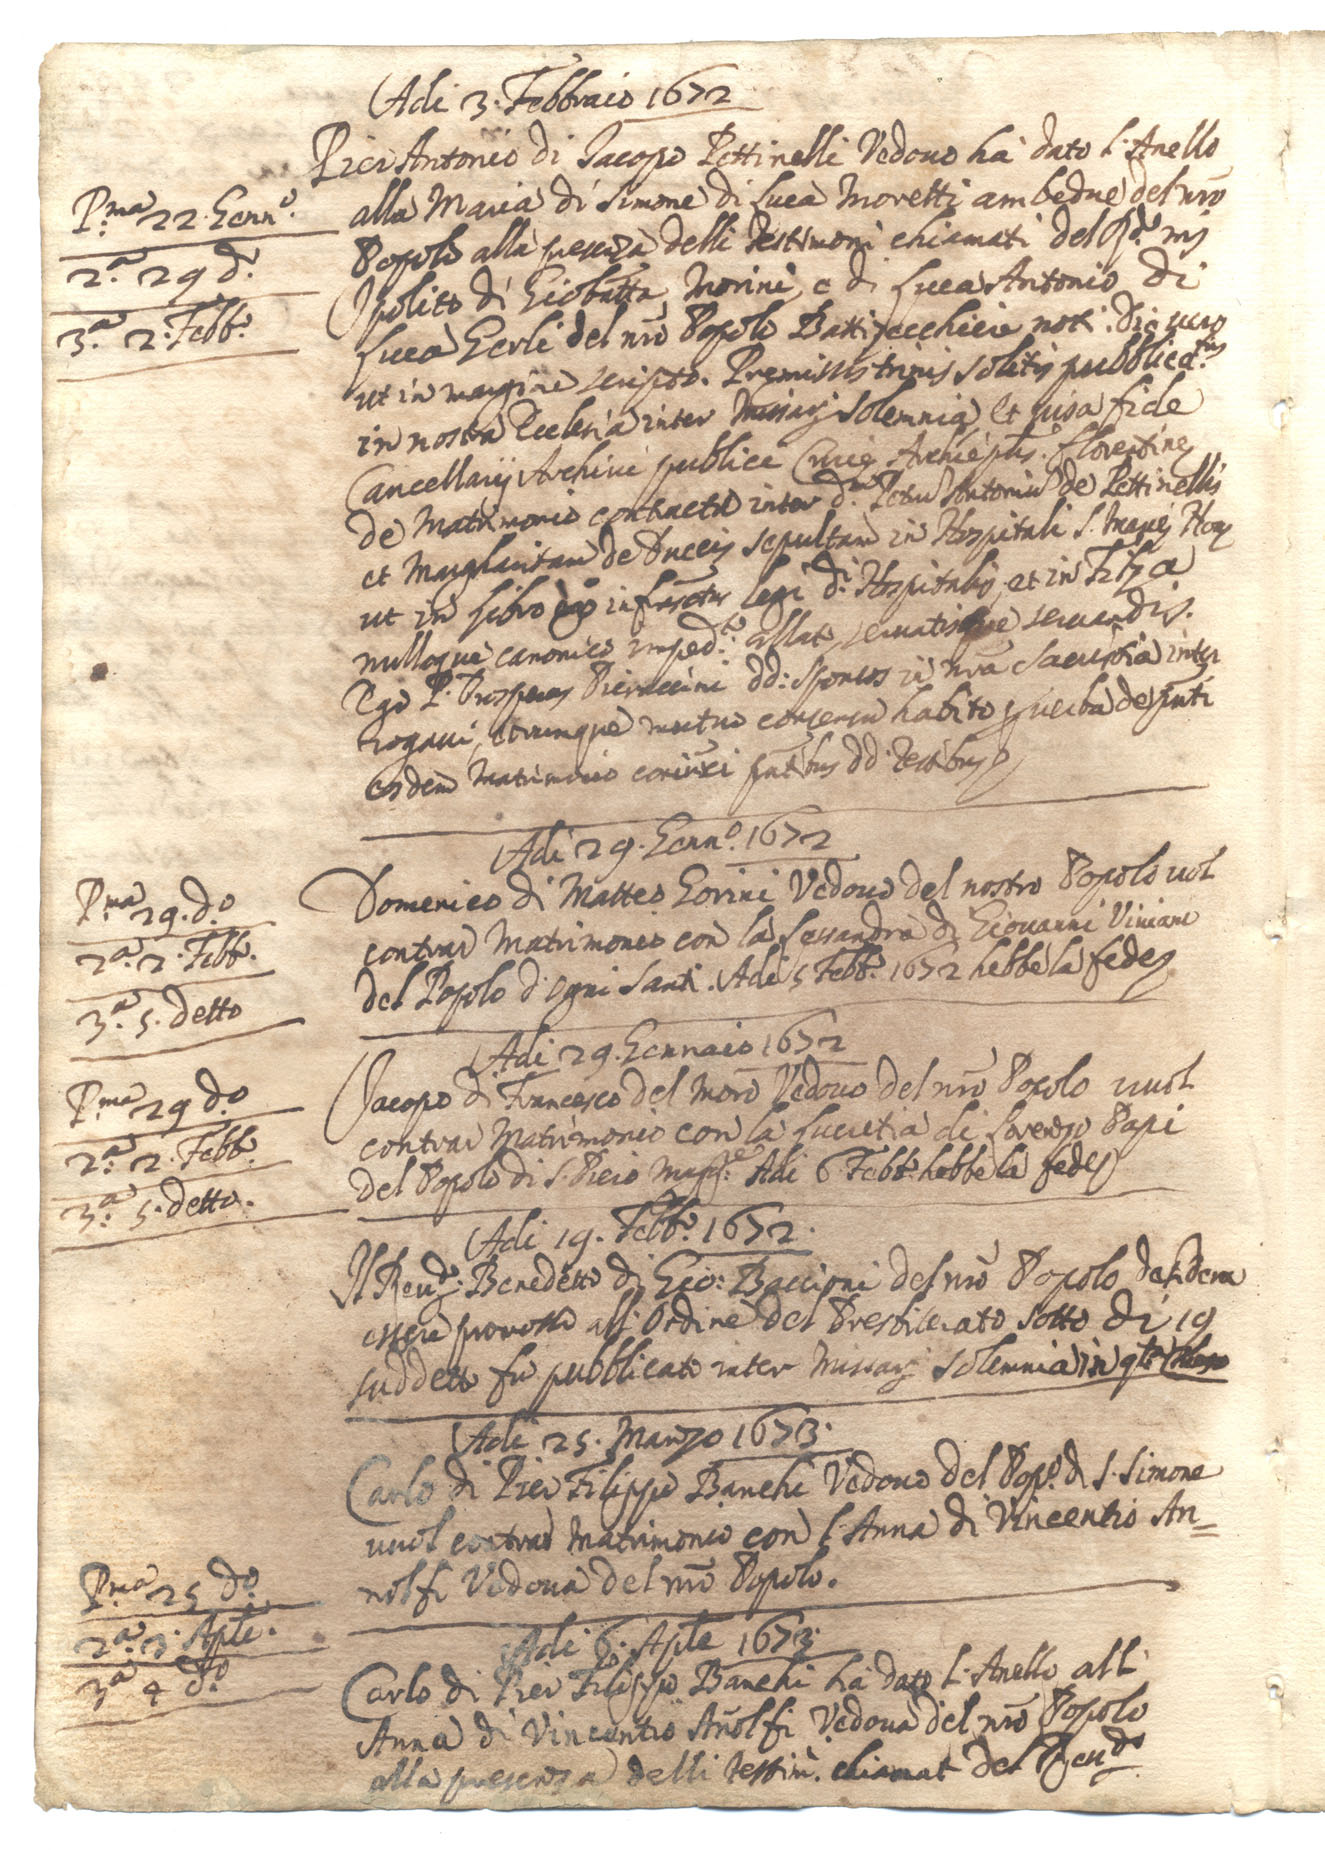 Adi 3. Febbraio 1672
Pier Antonio di Jacopo Pettinelli Vedovo ha dato l'Anello
P.ma 22. Genn.o
alla Maria di Simone di Luca Moretti ambedue del nrō
2.a 29 d.o
Popolo alla presenza delli Testimoni chiamati del R.do
3.a 2. Febb.o
Ipolito di Giobatta Morini, e di Luca Antonio di
Luca Gerli del nrō Popolo Battizecchiere noti. Die vero
ut in margine scripto. Premissis trinis solitis pubblicat.nis
in nostra Ecclesia inter Missarū Solemnia, et visa fide
Cancellarij Archivi publici Curie Archiēplis Florentine
de Matrimonio contracto inter d.m Petrū Antoniū de Pettinellis
et Margharitam de Duccis sepultam in Hospitali S. Marie
ut in libro infrascptus legi d.i Hospitalis, et in Filza
nulloque canonico imped.to allato, servatisque servandis.
Ego P. Prosperus Pieraccini dd: Sponsos in nrā Sacristia inter
rogavi, utrumque mutuo consensu habito p verba de pnti
eosdem Matrimonio coniunxi pntibus dd. Testibus
Adi 29. Genn.o 1672
P.ma 29. d.o
Domenico di Matteo Gorini Vedovo del nostro Popolo vol
2.a 2. Febb.o
contrar Matrimonio con la Lessandra di Giovanni Viviani
3.a 5. detto
del Popolo d'Ogni Santi. Adi 5 Febb.o 1672 hebbe la fede
Adi 29. Gennaio 1672
P.ma 29 d.o
Jacopo di Francesco del Moro Vedovo del nrō Popolo vuol
2.a 2. Febb.o
contrar Matrimonio con la Lucretia di Lorenzo Papi
3.a 5. detto.
del Popolo di S. Piero Magg.e Adi 6 Febb.o hebbe la fede
Adi 19. Febb.o 1672.
Il Reu.do Benedetto di Gio: Baccioni del nrō Popolo desidera
essere promosso all'Ordine del Presbiterato sotto di 19
suddetto fu pubblicato inter Missarū Solemnia in qta Chiesa
Adi 25. Marzo 1673.
Carlo di Pier Filippo Banchi Vedovo del Pop.o di S. Simone
vuol contrar Matrimonio con l'Anna di Vincentio An=
nolfi Vedova del nrō Popolo.
P.ma 25 d.o
2.a 3. Aple.
3.a 4 d.o
Adi 6. Aple 1673.
Carlo di Pier Filippo Banchi ha dato l'Anello all'
Anna di Vincentio Añolfi Vedova del nrō Popolo
alla presenza delli Testim. chiamat del Reu.do